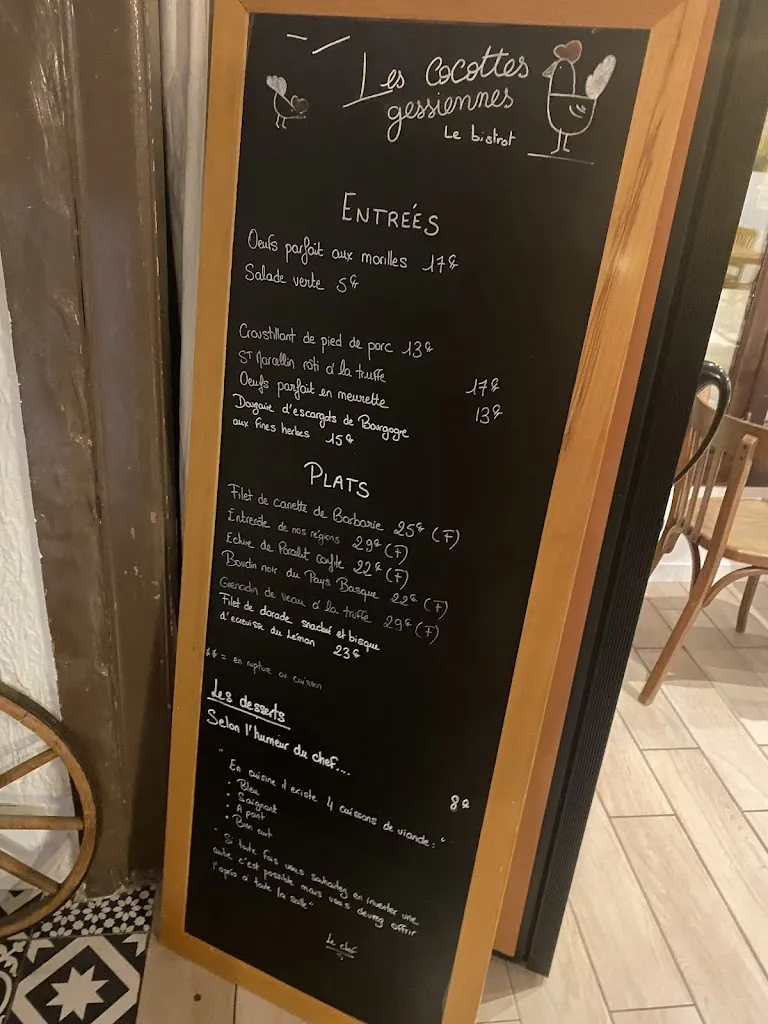 Les cocottes
gessiennes
Le bistrot
ENTREÉS
Oeufs parfait aux morilles 17€
Salade verte 5€
Croustillant de pied de porc 13€
ST Marcellin rôti à la truffe 17€
Oeufs parfait en meurette 13€
Douzaine d'escargots de Bourgogne
aux fines herbes 15€
PLATS
Filet de canette de Barbarie 25€ (F)
Entrecôte de nos régions 29€ (F)
Echine de Porcelet confite 22€ (F)
Boudin noir du Pays Basque 22€ (F)
Grenadin de veau à la truffe 29€ (F)
Filet de dorade snacké et bisque
d'écrevisse du Léman 23€
** = en rupture ou cuisson
Les desserts
Selon l'humeur du chef... 8€
" En cuisine il existe 4 cuissons de viande : "
• Bleu
• Saignant
• A point
• Bien cuit
" Si toute fois vous souhaitez en inventer une
autre c'est possible mais vous devrez offrir
l'apéro à toute la salle "
Le chef